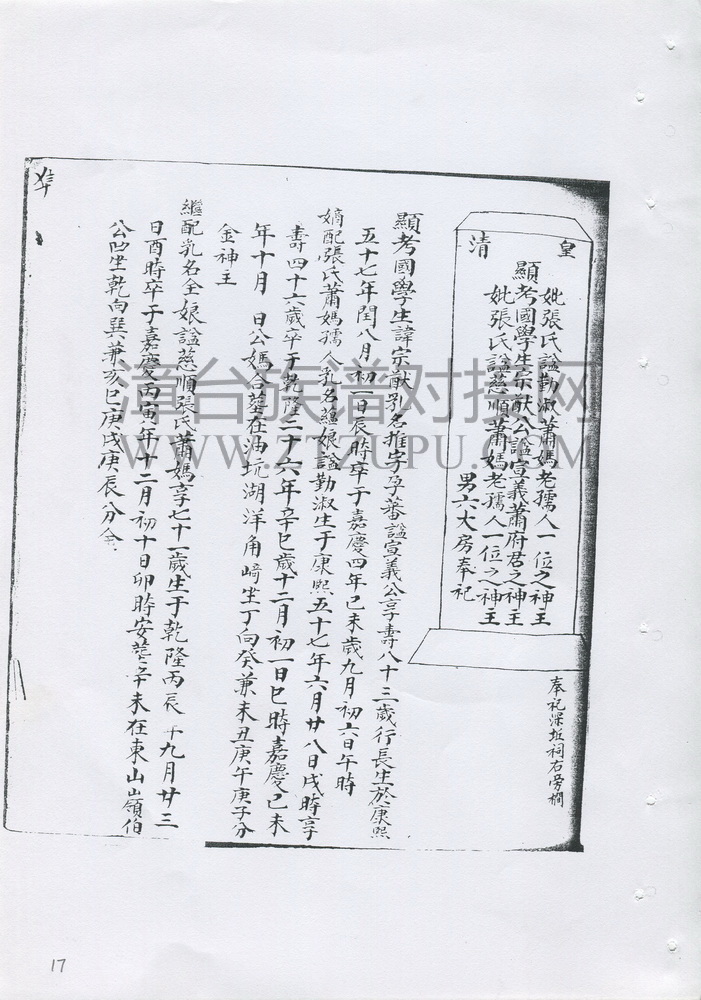 奉祀深坵祠右旁櫥
皇
清
妣張氏謚勤淑蕭媽老孺人一位之神主
顯考國學生宗猷公謚宣義蕭府君之神主
妣張氏謚慈順蕭媽老孺人一位之神主
男六大房奉祀
顯考國學生諱宗猷別名推字孕蕃謚宣義公享壽八十三歲行長生於康熙
五十七年閏八月初一日辰時卒于嘉慶四年己未歲九月初六日午時
嫡配張氏蕭媽孺人乳名蘊娘謚勤淑生于康熙五十七年六月廿八日戌時享
壽四十六歲卒于乾隆二十六年辛巳歲十二月初一日巳時嘉慶己未
年十月 日公媽合葬在油坑湖洋角崎坐丁向癸兼未丑庚午庚子分
金神主
繼配乳名全娘謚慈順張氏蕭媽享七十一歲生于乾隆丙辰年九月廿三
日酉時卒于嘉慶丙寅年十二月初十日卯時安葬辛未在東山嶺伯
公凹坐乾向巽兼亥巳庚戌庚辰分金
章台族谱对接网
WWW.ZTZUPU.COM
17